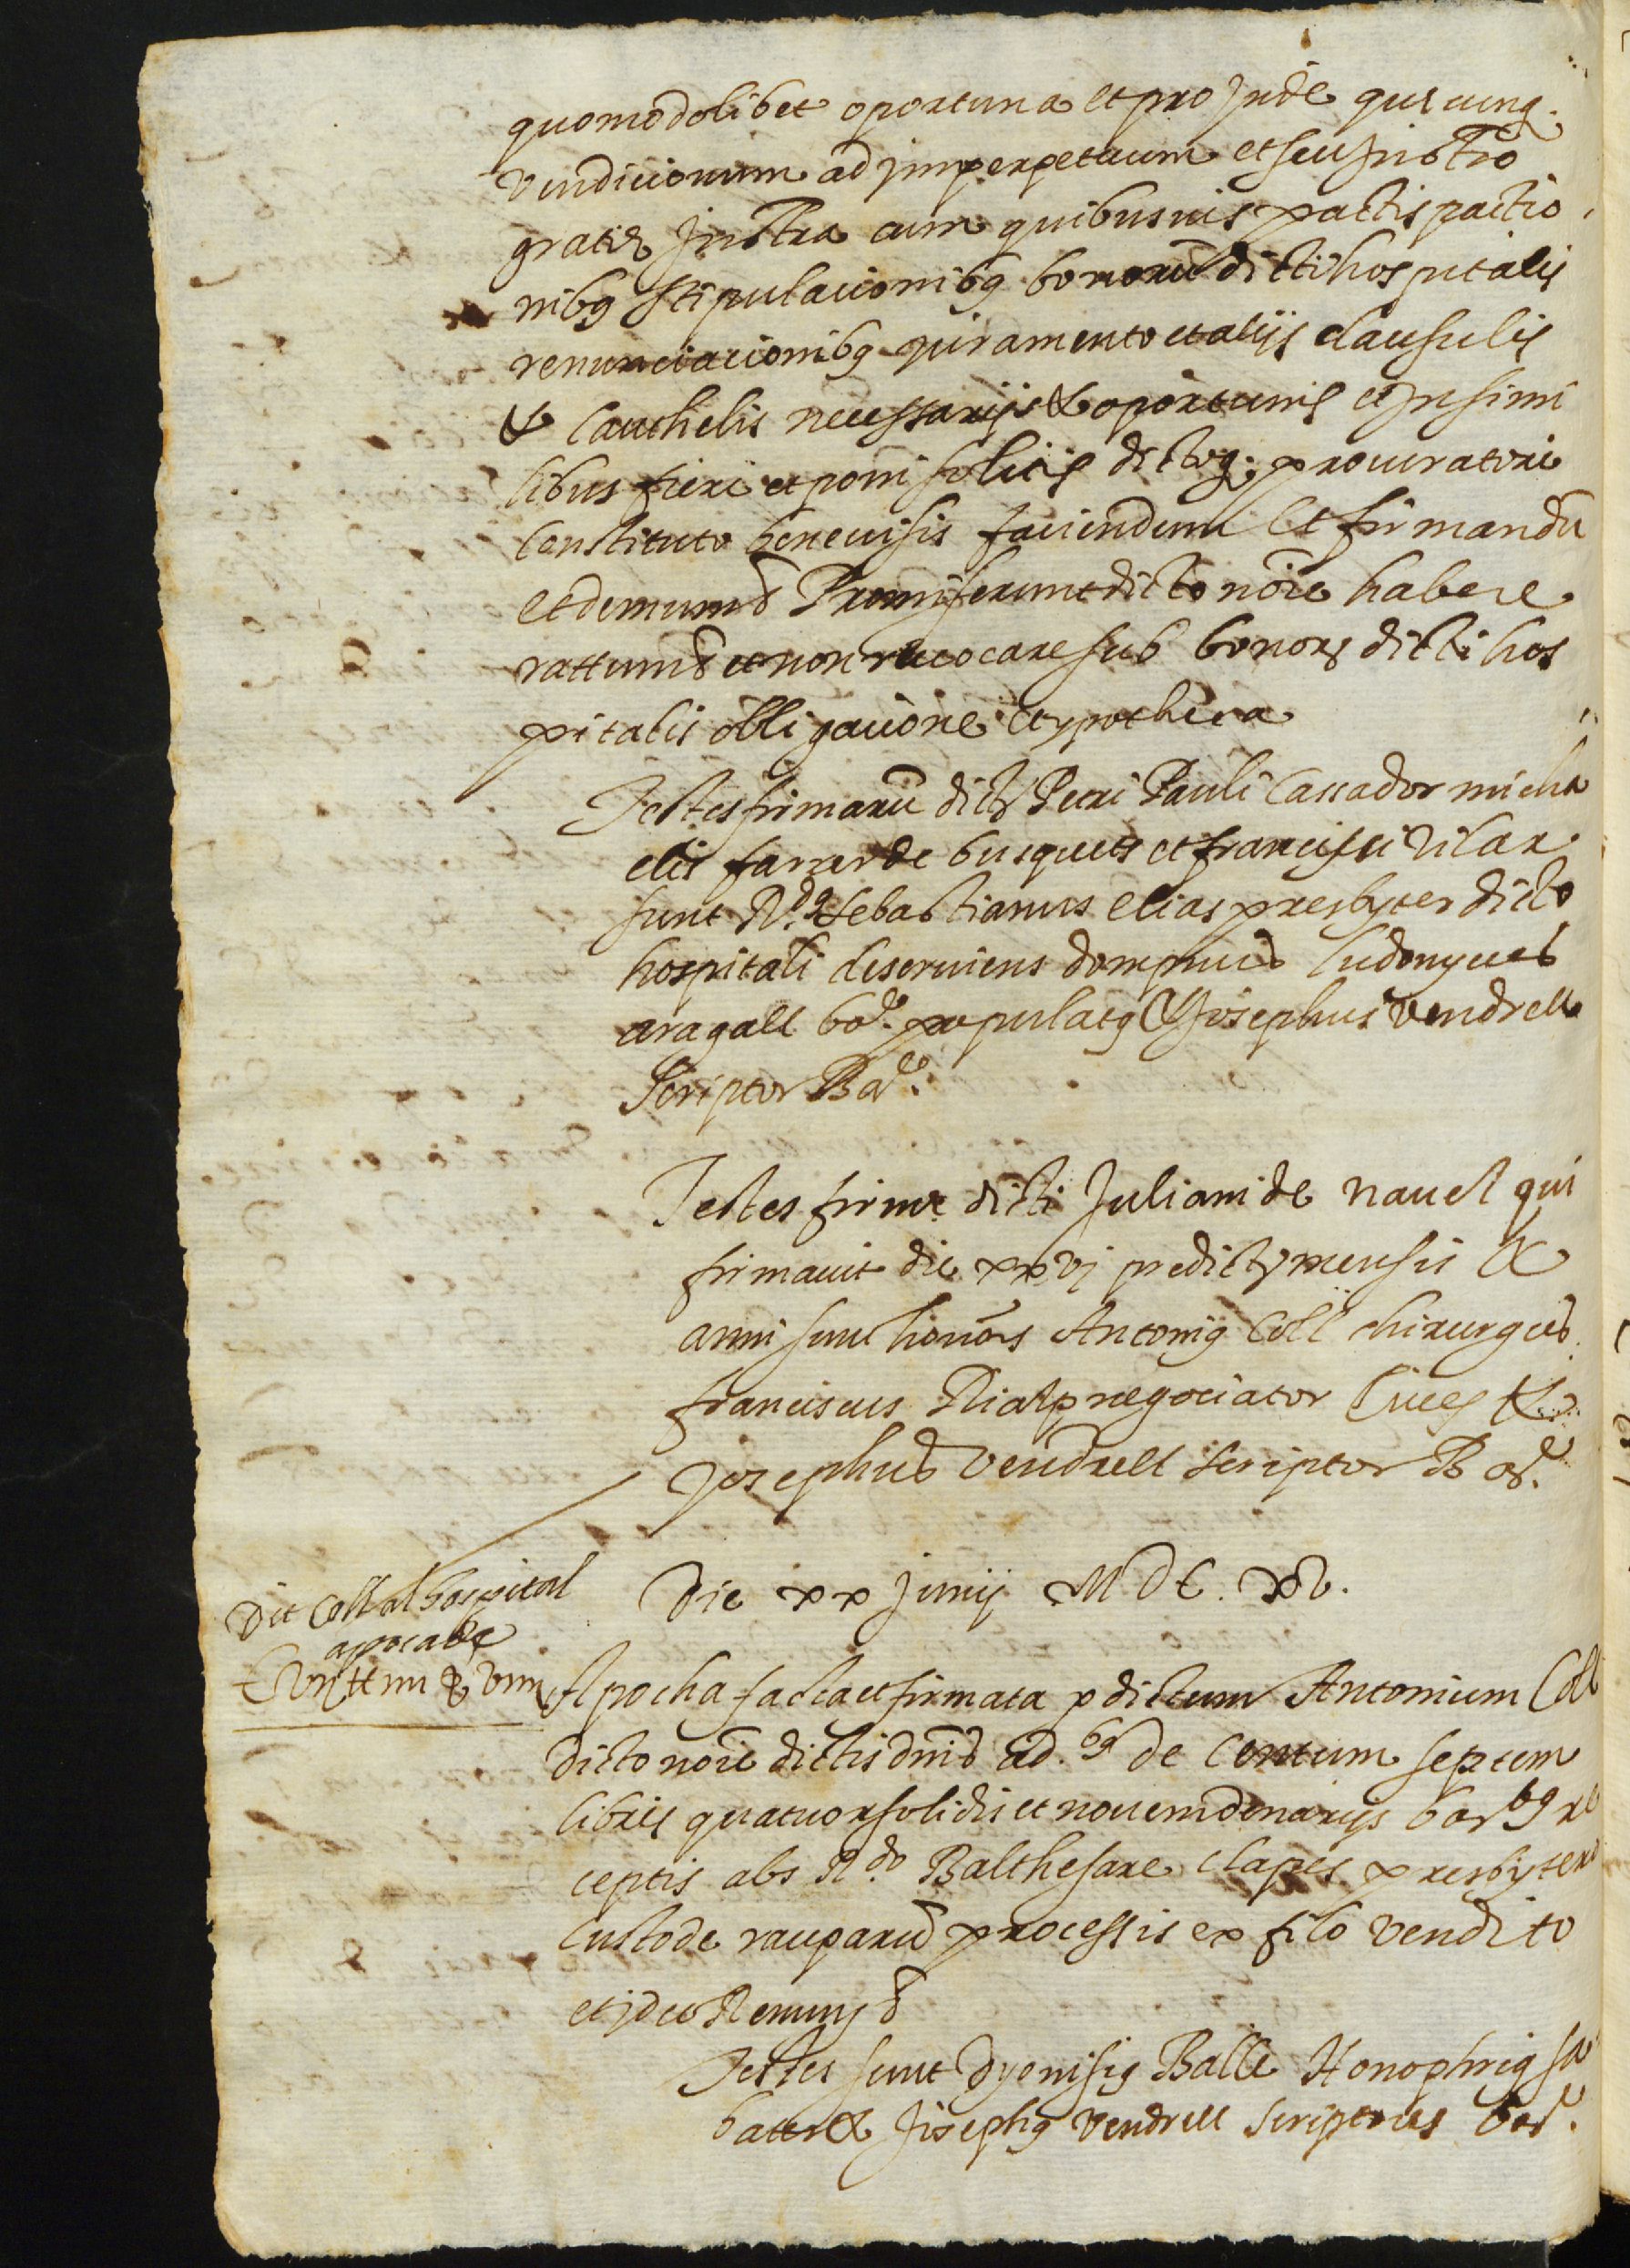 quomodolibet oportuna et pro inde quecunq.
vendicionum ad imperpetuum et seu instro
gratie Instra cum quibusuis pactis pactio
nibq stipulacionibq bonorū dicti hospitalis
renunciacionibq juramento et alijs clausulis
& Cauthelis necessarijs & oportunis et in simi
libus fieri et poni solitis dictoq; procuratori
Constituto benevisis faciendum et firmandū
et demum Promiserunt dicto nōie habere
rattum et non revocare sub bonor dicti hos
pitalis obligacione et ypotheca
Testes firmarū dictor Petri Pauli Cassador micha
elis farrer de busquets et francisci Vilar
sunt R.dq Sebastianus elias presbyter dicto
hospitali deserviens dompnus Ludovycus
aragall bar.e populatq & Josephus Vendrell
Scriptor Bar.e
Testes firme dicti Juliani de navel qui
firmavit die xxvj predictor mensis &
anni sunt honors Antoniq Coll chirurgus
franciscus Rialp negociator Cives &
Josephus Vendrell scriptor Bar.e
Die xx Junij MDC. xv.
Dit Coll al hospital
apocabq
Apocha facta et firmata p dictum Antonium Coll
dicto nōie dictis dnīs ad.bq de Centum septem
libris quatuor solidis et novem denarijs barbq re
ceptis abs R.do Balthesare Clapes presbytero
Custode rauparū processis ex filo vendito
et ideo Renuns
Testes sunt Dyonisiq Balle Honophriq sa
bater & Josephq Vendrell scriptores bar.e